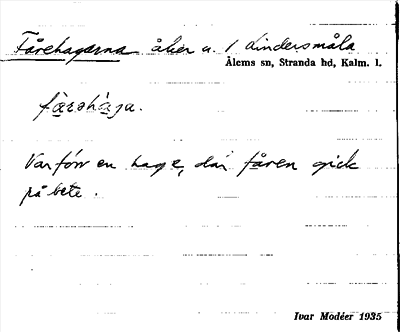 Fårehagarna åker u. / Lindersmåla
Ålems sn, Stranda hd, Kalm. l.
fårəhàga.
Var förr en hage, där fåren gick
på bete.
Ivar Modéer 1935